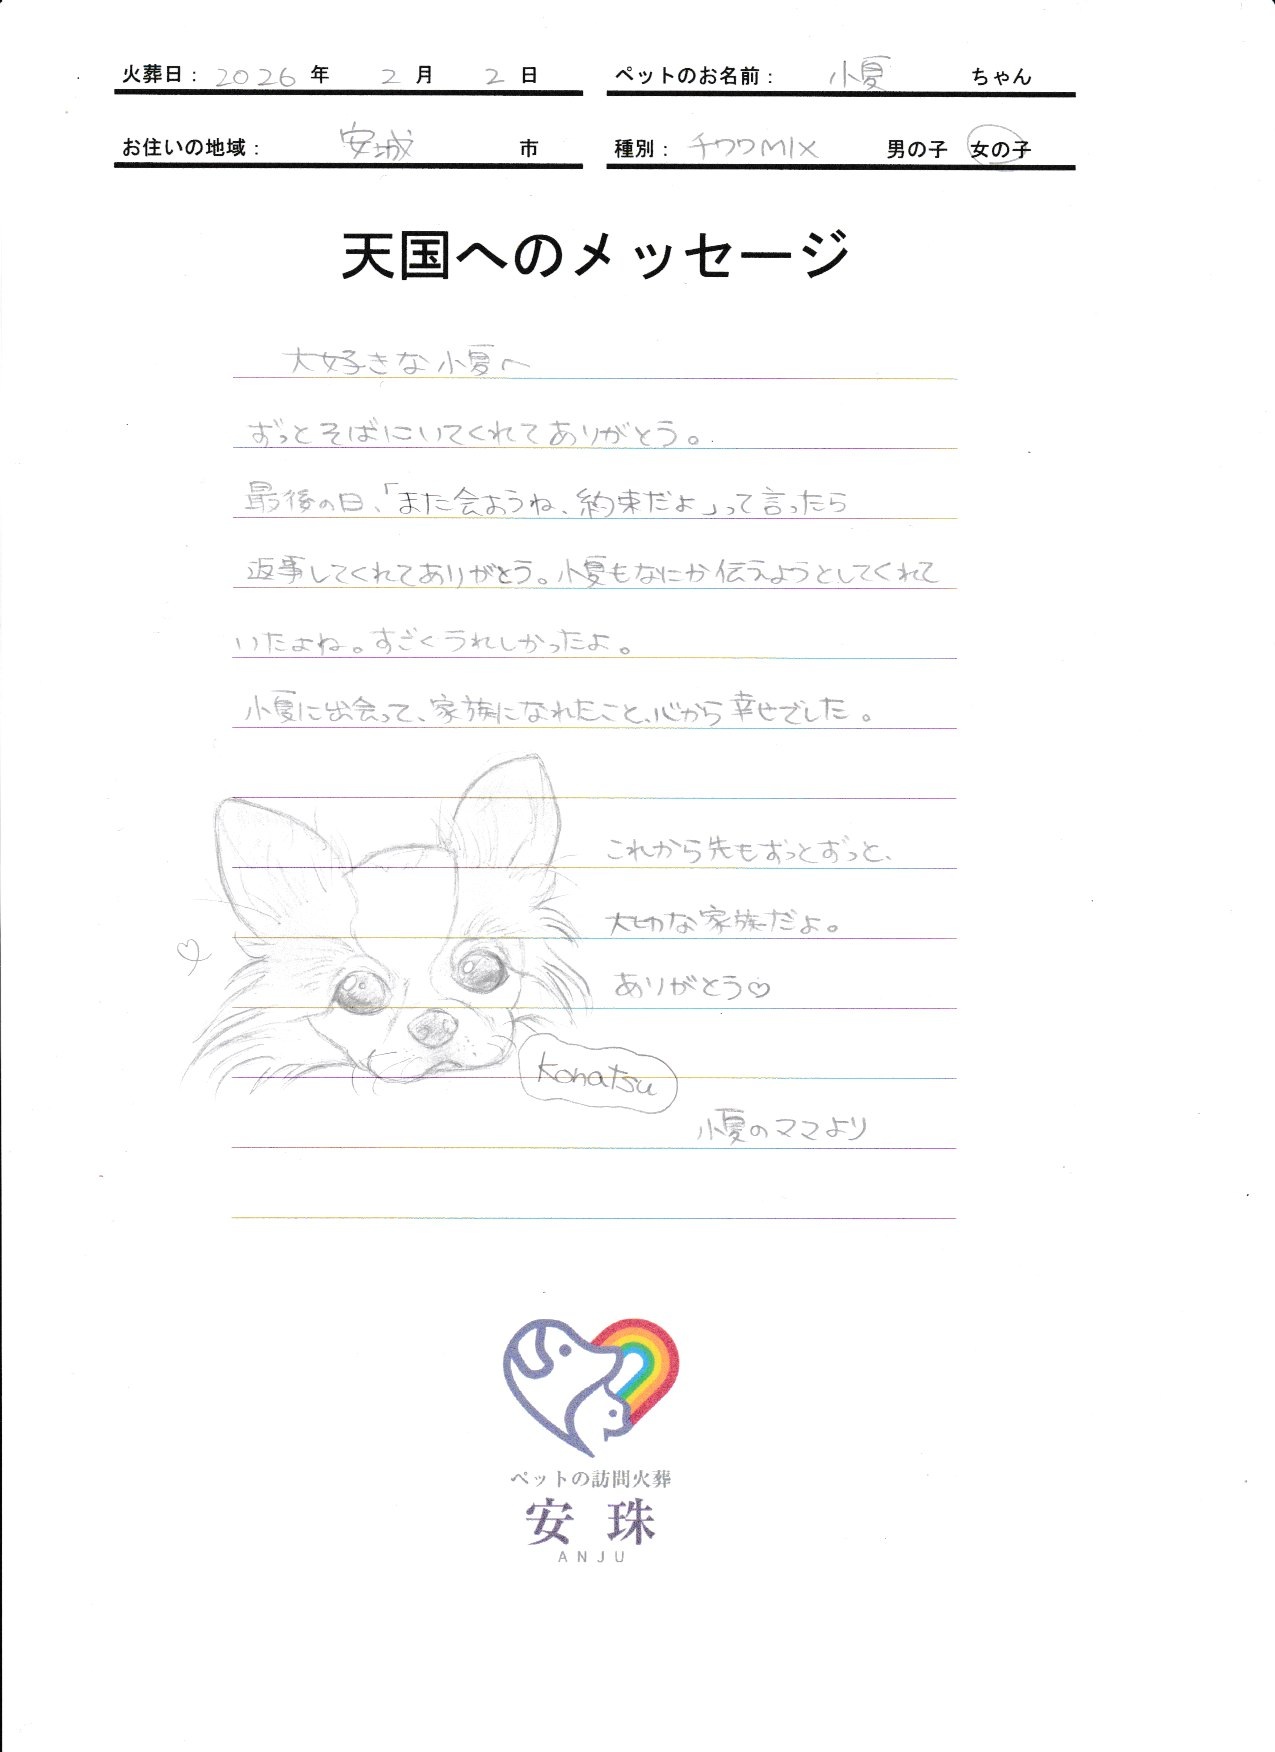 火葬日： 2026 年 2 月 2 日
ペットのお名前： 小夏 ちゃん
お住いの地域： 安城 市
種別： チワワMIX 男の子 女の子
天国へのメッセージ
大好きな小夏へ
ずっとそばにいてくれてありがとう。
最後の日、「また会おうね、約束だよ」って言ったら
返事してくれてありがとう。小夏もなにか伝えようとしてくれて
いたよね。すごくうれしかったよ。
小夏に出会って、家族になれたこと、心から幸せでした。
これから先もずっとずっと、
大切な家族だよ。
ありがとう♡
Konatsu
小夏のママより
ペットの訪問火葬
安珠
ANJU